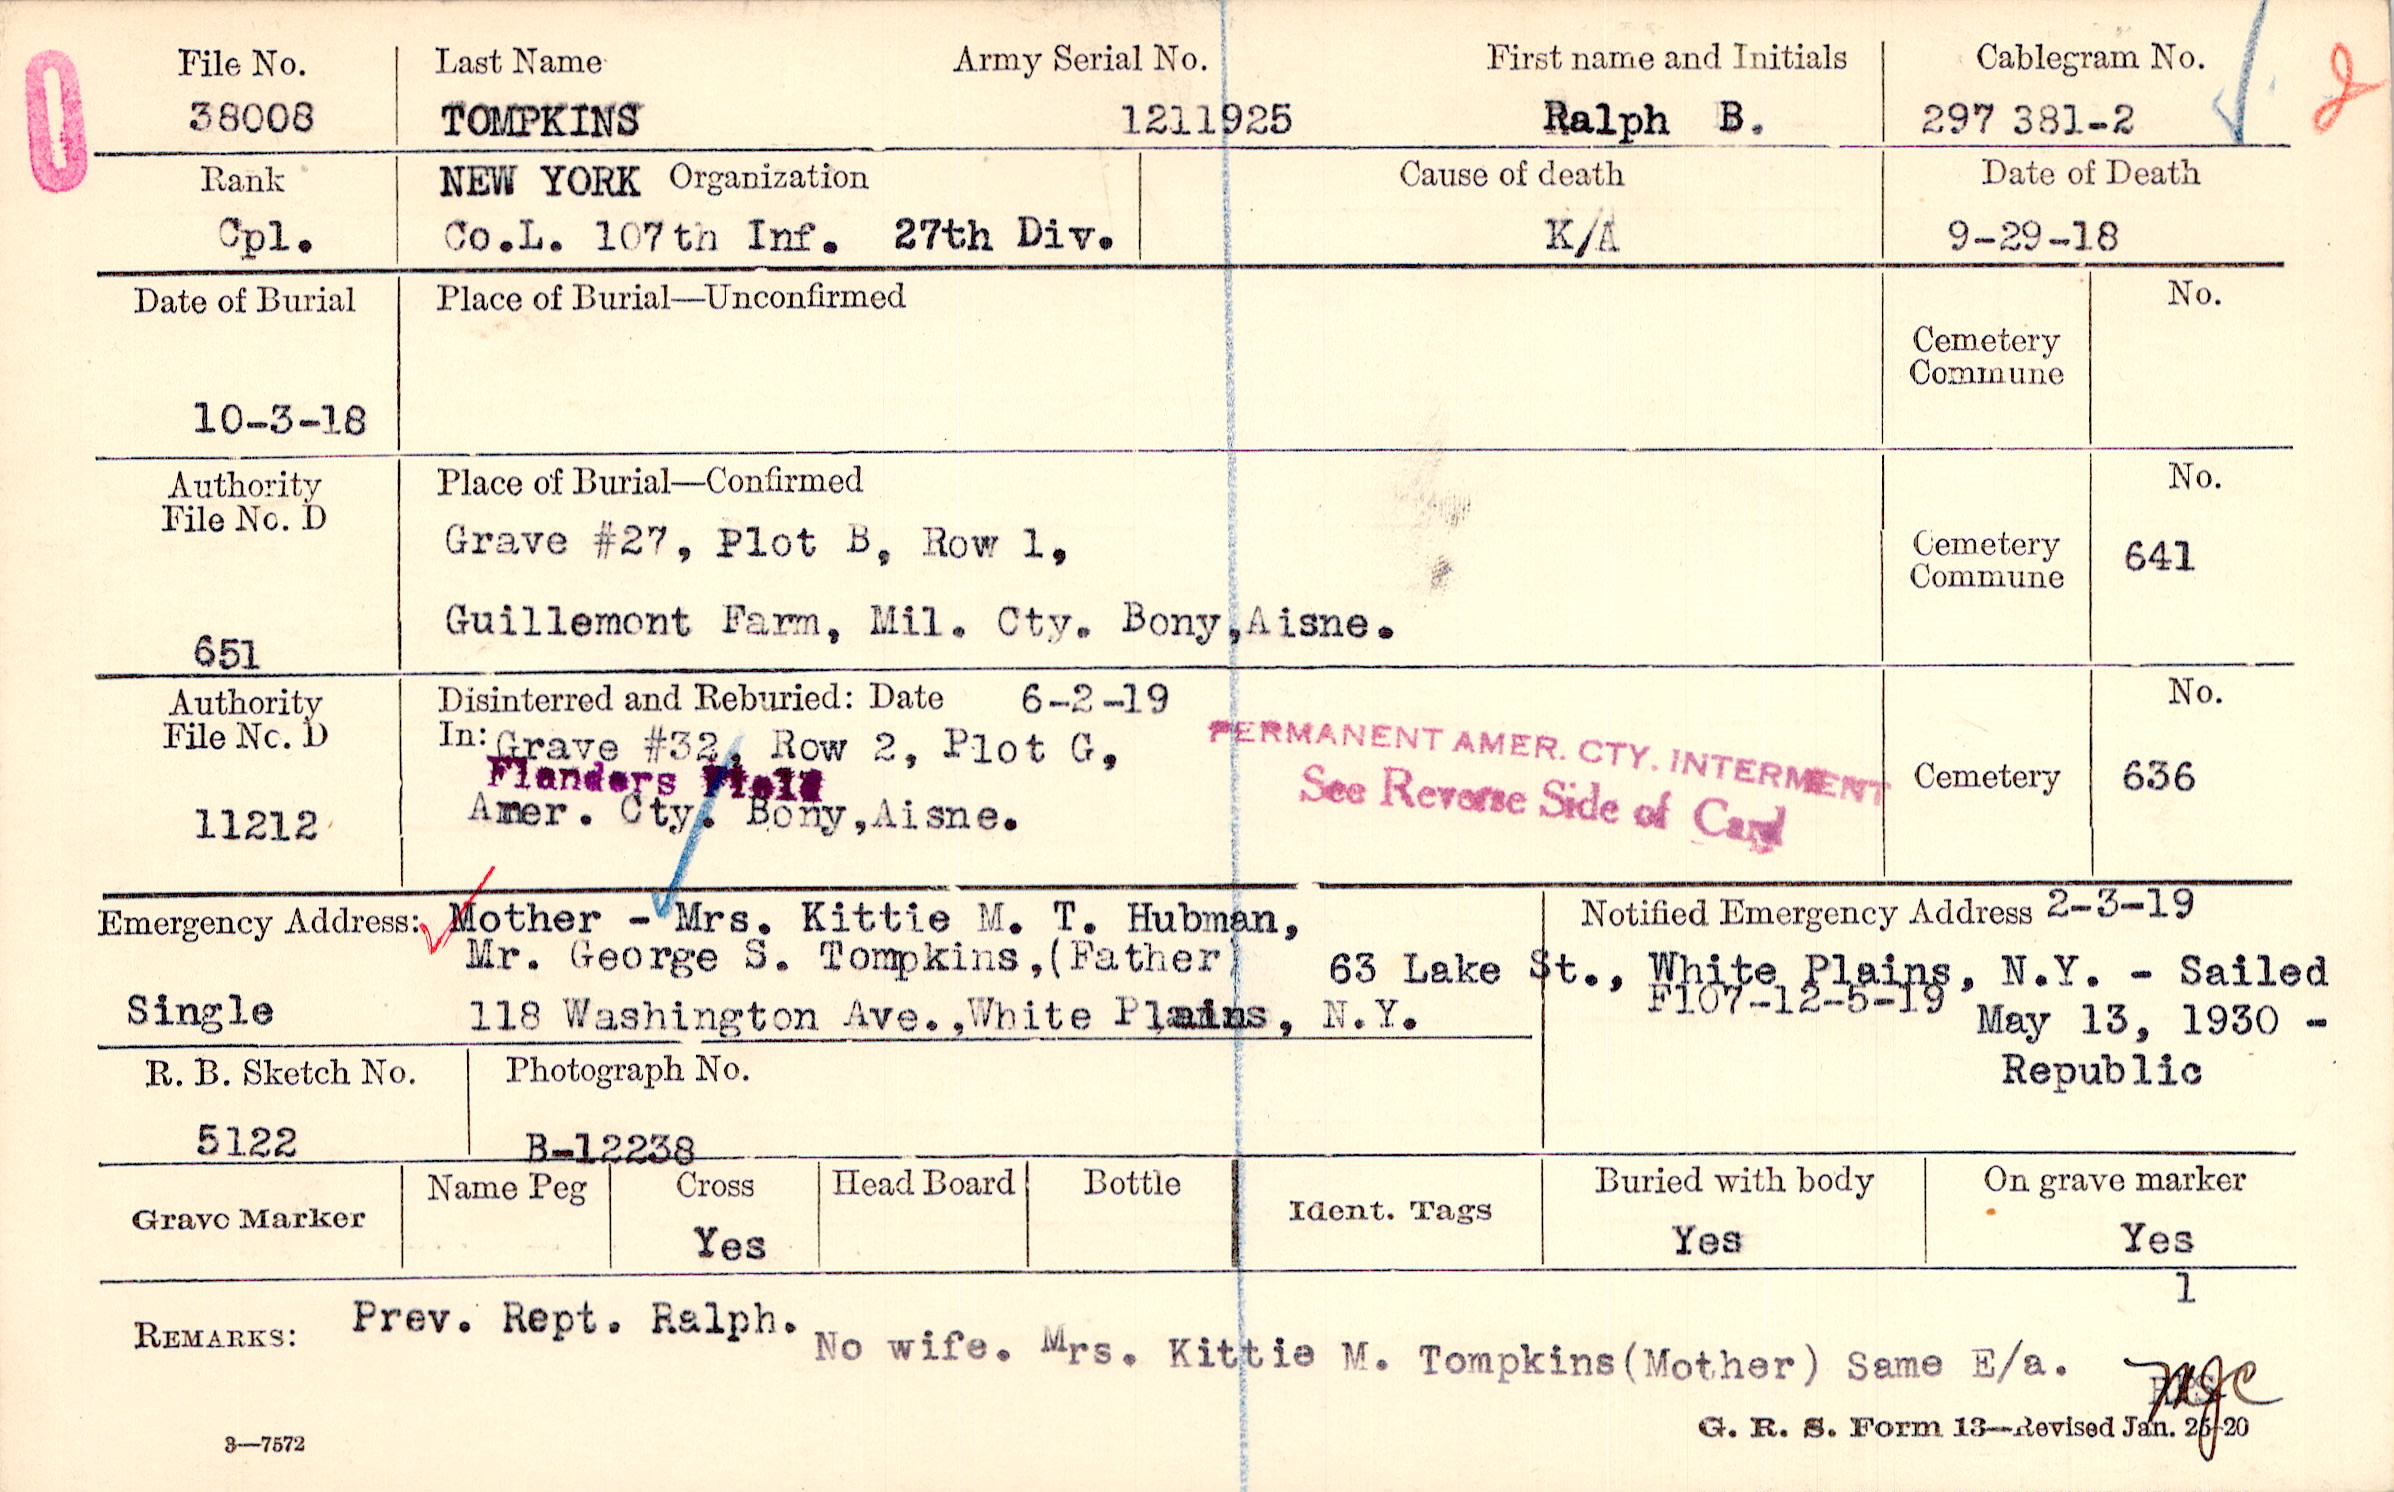 File No. Last Name Army Serial No. First name and Initials Cablegram No.
38008 TOMPKINS 1211925 Ralph B. 297 381-2
Rank NEW YORK Organization Cause of death Date of Death
Cpl. Co.L. 107th Inf. 27th Div. K/A 9-29-18
Date of Burial Place of Burial—Unconfirmed No.
Cemetery
Commune
10-3-18
Authority Place of Burial—Confirmed No.
File No. D
Grave #27, Plot B, Row 1,
Cemetery
Commune 641
Guillemont Farm, Mil. Cty. Bony,Aisne.
651
Authority Disinterred and Reburied: Date 6-2-19 No.
File No. D In: Grave #32, Row 2, Plot G,
PERMANENT AMER. CTY. INTERMENT
Flanders Field
See Reverse Side of Card
Cemetery 636
11212 Amer. Cty. Bony,Aisne.
Emergency Address: Mother - Mrs. Kittie M. T. Hubman, Notified Emergency Address 2-3-19
Mr. George S. Tompkins,(Father) 63 Lake St., White Plains, N.Y. - Sailed
F107-12-5-19
Single 118 Washington Ave.,White Plains, N.Y. May 13, 1930 -
Republic
R. B. Sketch No. Photograph No.
5122 B-12238
Grave Marker Name Peg Cross Head Board Bottle Ident. Tags Buried with body On grave marker
Yes Yes Yes
1
REMARKS: Prev. Rept. Ralph.
No wife. Mrs. Kittie M. Tompkins(Mother) Same E/a.
mjc
3—7572 G. R. S. Form 13—Revised Jan. 26-20